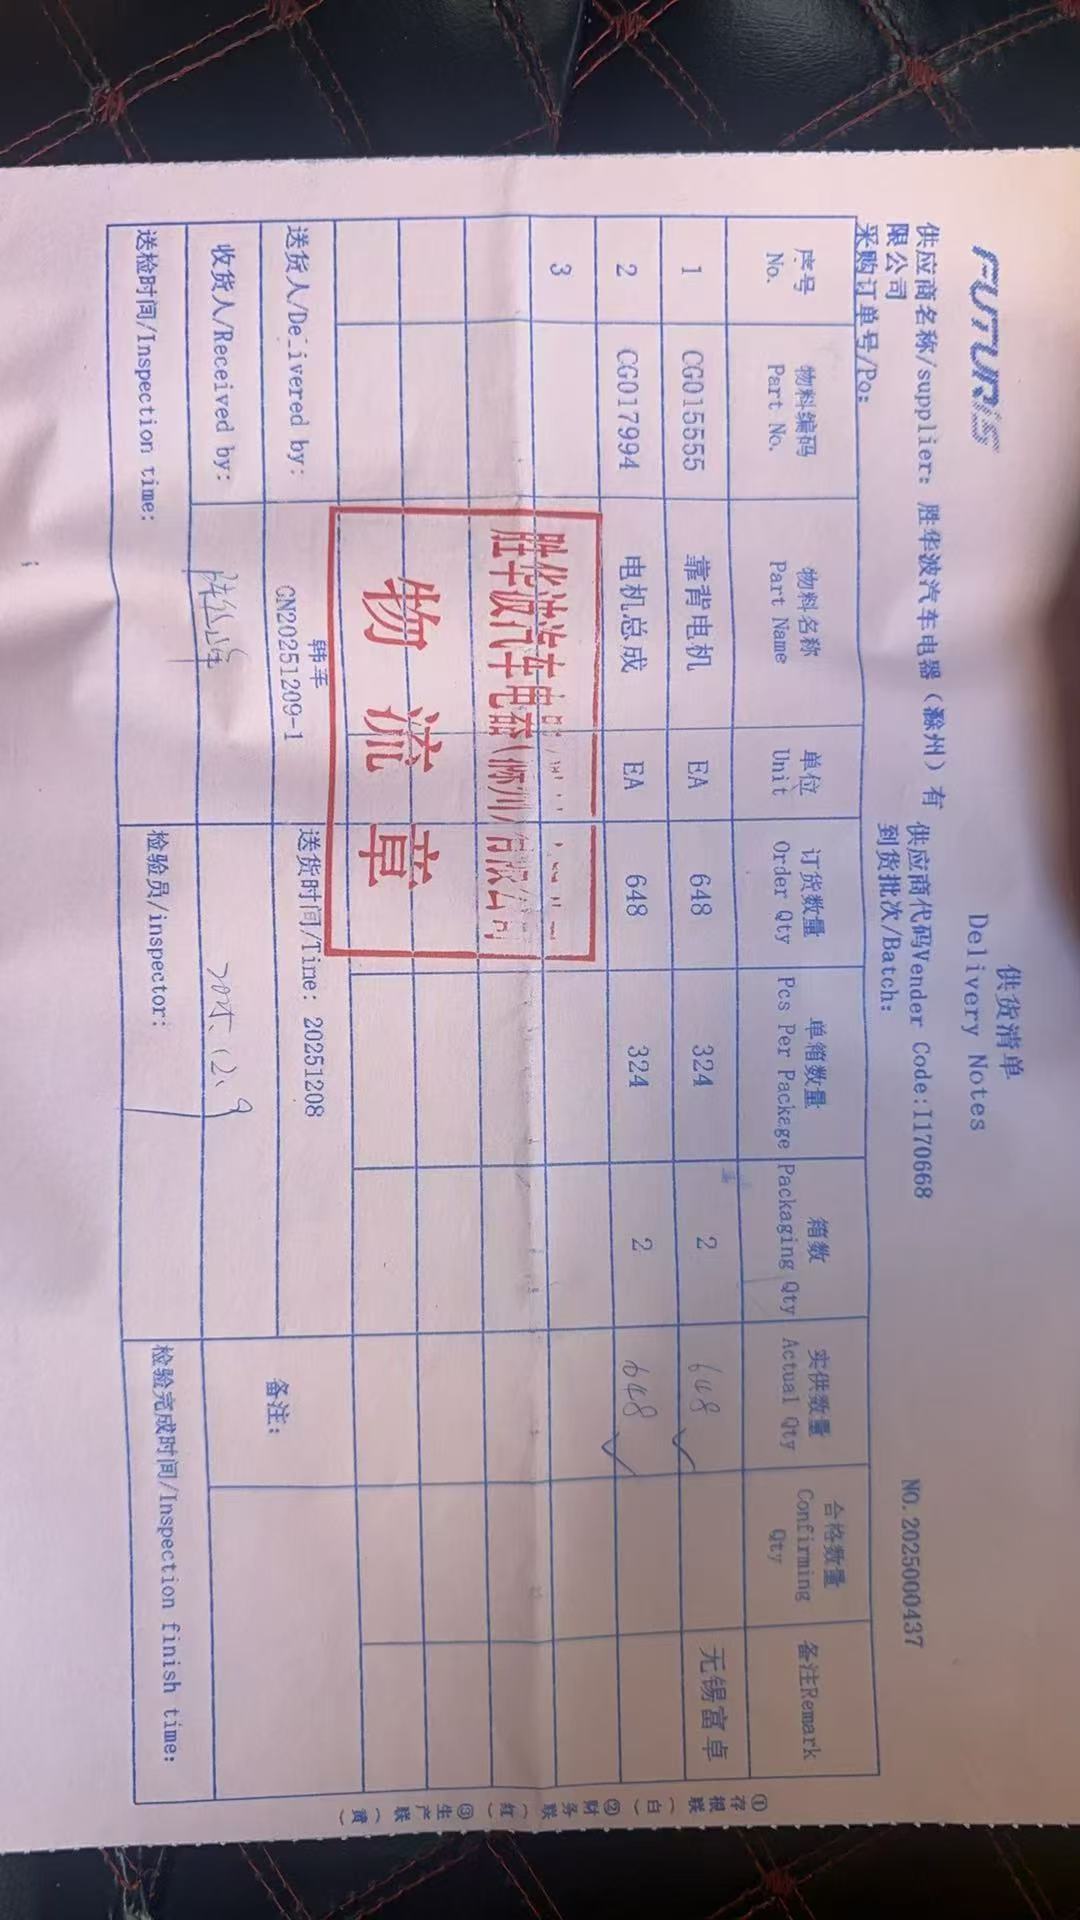 FUTURIS
供货清单
Delivery Notes
供应商名称/supplier: 胜华波汽车电器（滁州）有限公司
供应商代码Vender Code:I170668
NO.2025000437
采购订单号/Po:
到货批次/Batch:
序号 No. 物料编码 Part No. 物料名称 Part Name 单位 Unit 订货数量 Order Qty 单箱数量 Pcs Per Package 箱数 Packaging Qty 实供数量 Actual Qty 合格数量 Confirming Qty 备注Remark
1 CG015555 靠背电机 EA 648 324 2 648 ✓ 无锡富卓
2 CG017994 电机总成 EA 648 324 2 648 ✓
3
胜华波汽车电器(滁州)有限公司
物流章
送货人/Delivered by: 韩车 GN20251209-1 送货时间/Time: 20251208 备注:
收货人/Received by: 2025.12.9
送检时间/Inspection time: 检验员/inspector: 检验完成时间/Inspection finish time:
①存根联（白）②财务联（红）③生产联（黄）